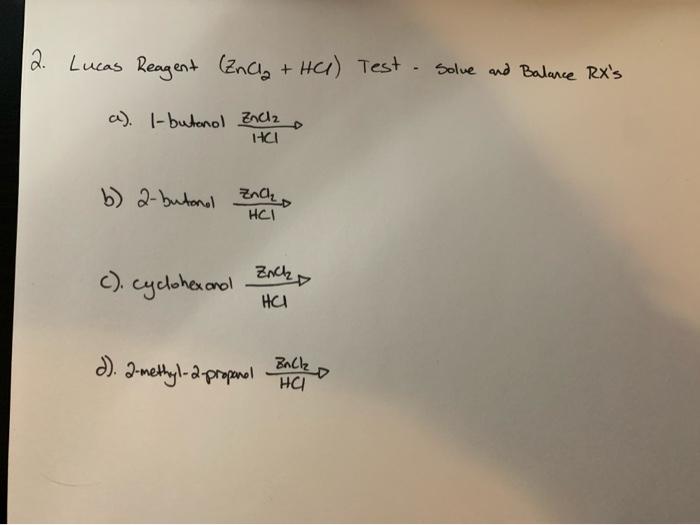 2. Lucas Reagent (ZnCl2 + HCl) Test - Solve and Balance RX's
a). 1-butanol ZnCl2
HCl
b) 2-butanol ZnCl2
HCl
c). cyclohexanol ZnCl2
HCl
d). 2-methyl-2-propanol ZnCl2
HCl